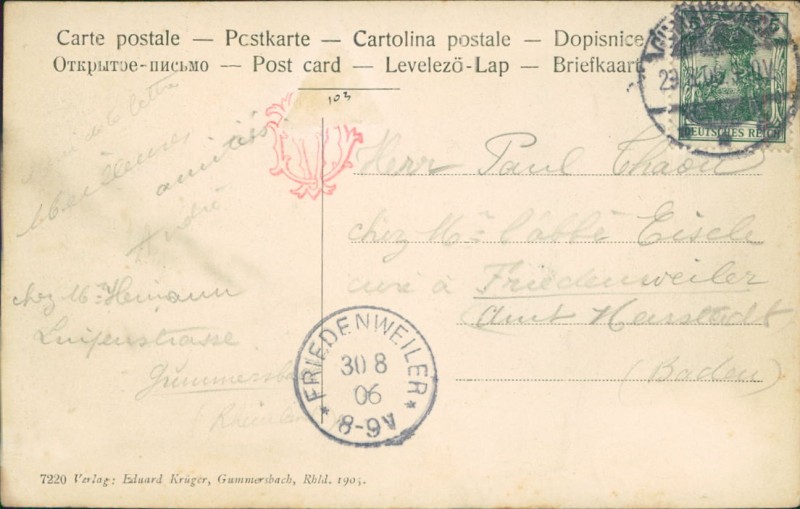 Carte postale — Postkarte — Cartolina postale — Dopisnice
Открытое-письмо — Post card — Levelező-Lap — Briefkaart
103
5 5
DEUTSCHES REICH
Meilleures
amitiés
André
chez Mr Heimann
Luisenstrasse
Gummersba
Herr Paul
chez Mr l'abbé Eisele
curé à Friedenweiler
(Amt Neustadt)
(Baden)
FRIEDENWEILER
30 8
06
8-9V
7220 Verlag: Eduard Krüger, Gummersbach, Rhld. 1905.